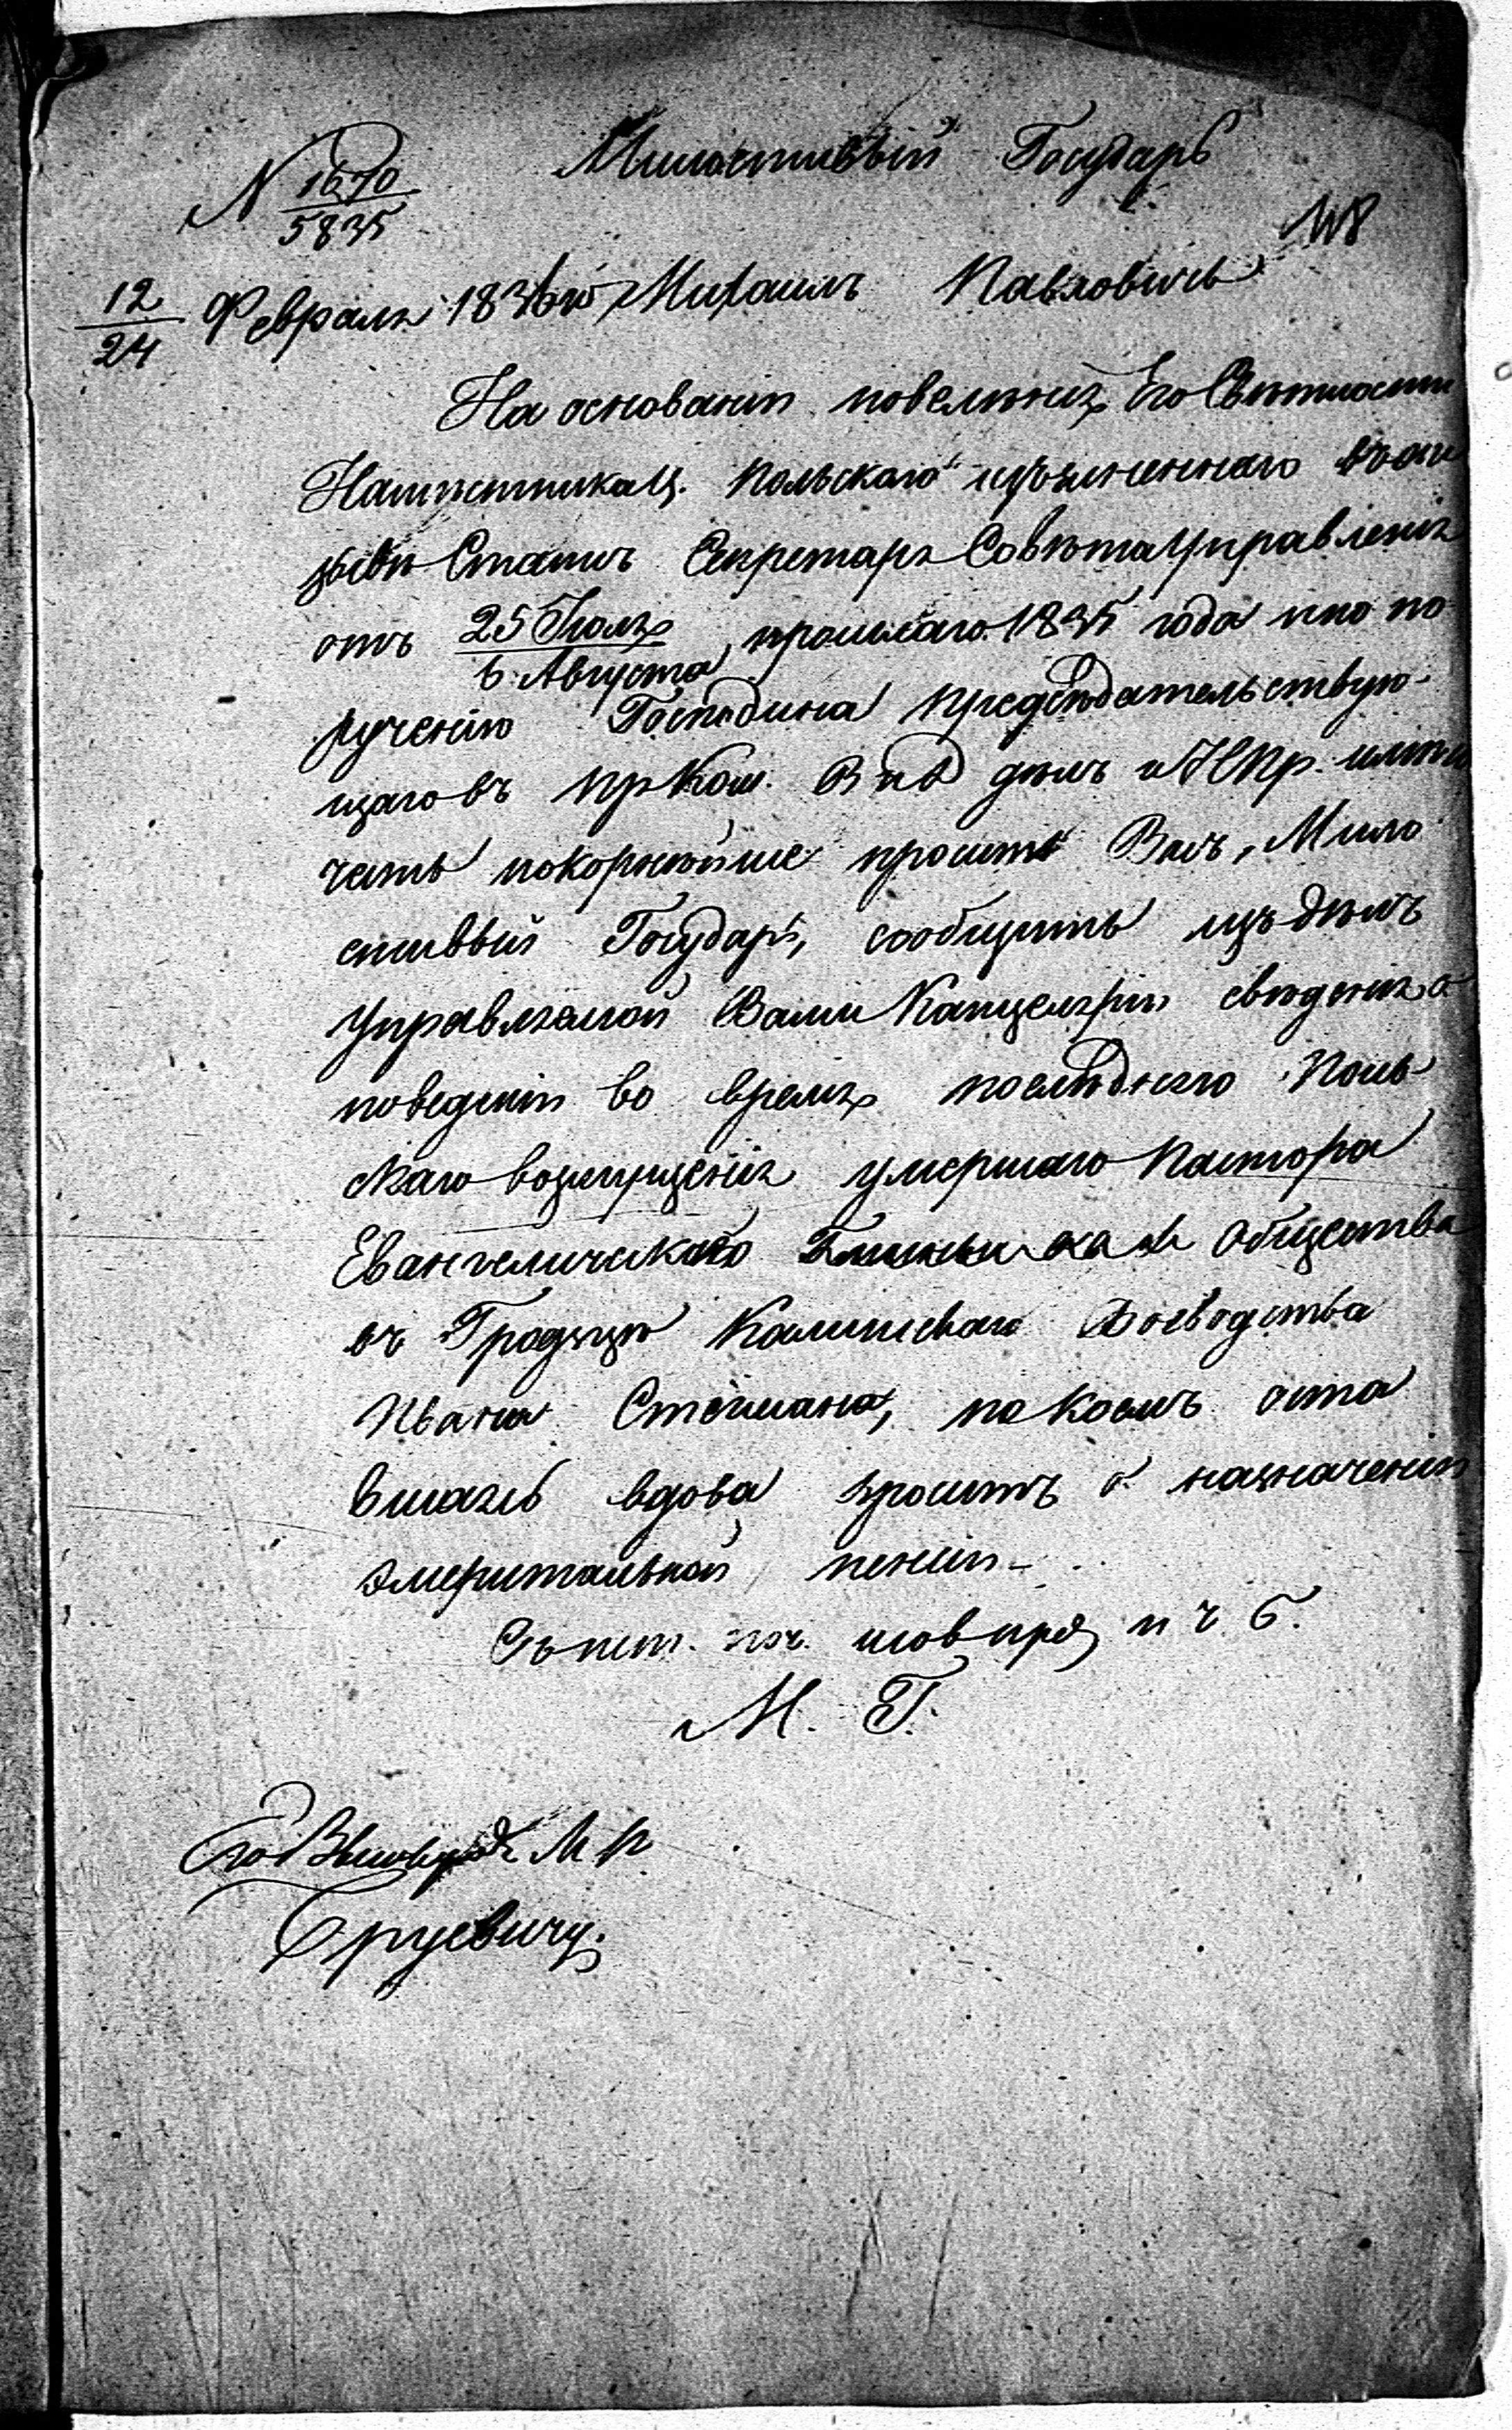 Милостивый Государь
N 1670/5835
118
12/24 Февраля 1836го Михаилъ Павловичь
На основаніи повеленія Его Свѣтлости
Намѣстника Ц. Польскаго изъясненнаго въ
Статсъ Секретаря Совѣта Управленія
отъ 25 Іюля/6 Августа прошлаго 1835 года и по по
рученію Господина Предсѣдательствую-
щаго въ Пр Ком. В и Д дѣлъ и Н Пр. имѣю
честь покорнѣйше просить Васъ, Мило
стивый Государь, сообщить изъ дѣлъ
управляемой Вами Канцеляріи свѣденія о
поведеніи во время послѣдняго Поль
скаго возмущенія умершаго Пастора
Евангелическаго Общества
въ Гродзцѣ Калишскаго Воеводства
Ивана Стегмана, по коемъ оста
вшаясь вдова проситъ о назначеніи
эмеритальной пенсіи
Съ ист. поч. и ч. б.
М. Г.
Его Высокород М П
Брусвичу.